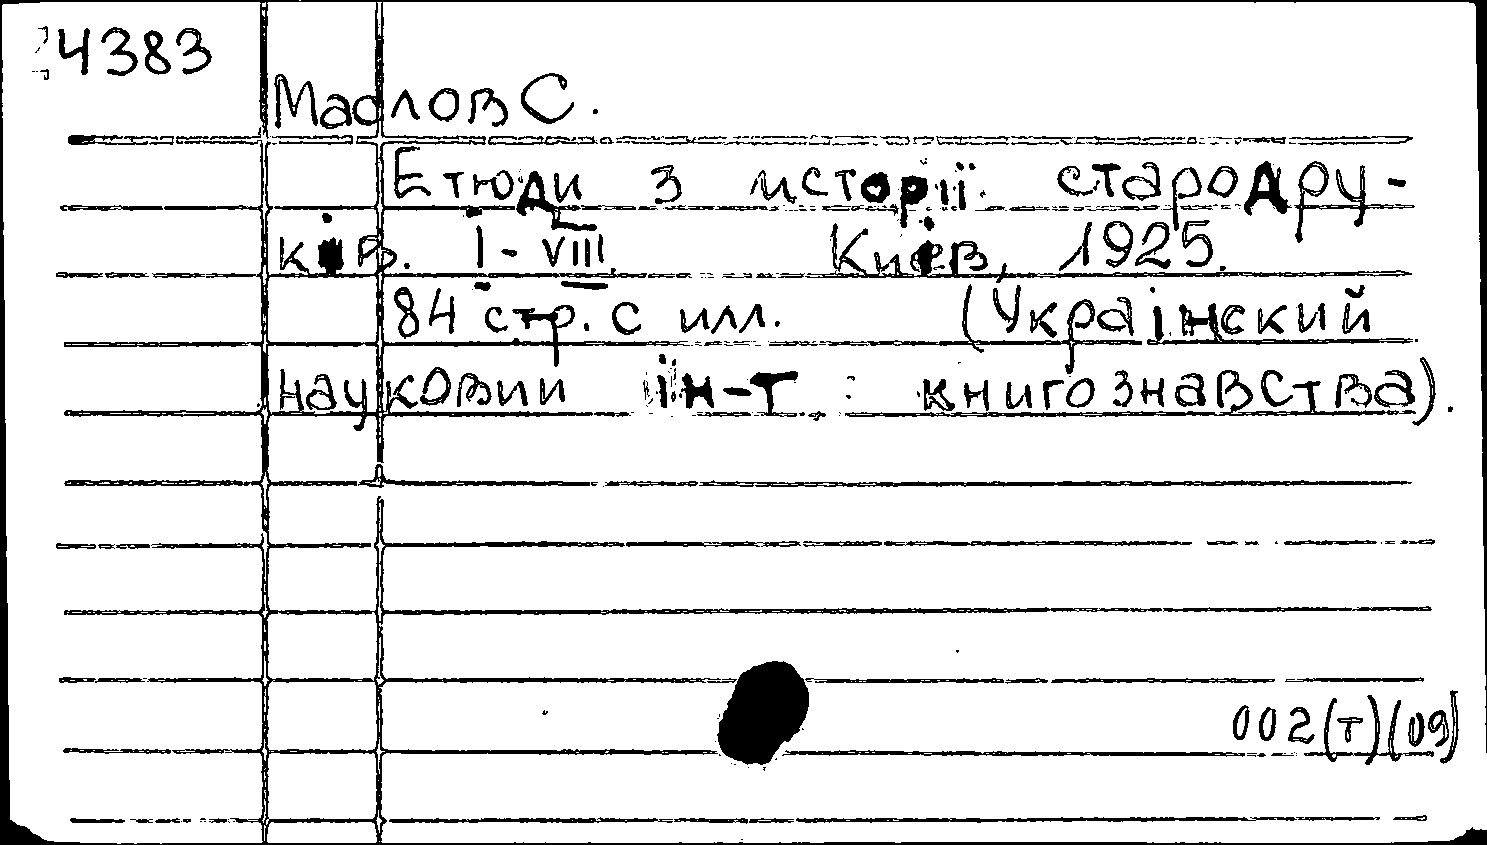 4383
Маслов С.
Етюди з історії стародру-
ків. I-VIII. Київ, 1925.
84 стр. с илл. (Український
науковий ін-т книгознавства).
002(т)(09)